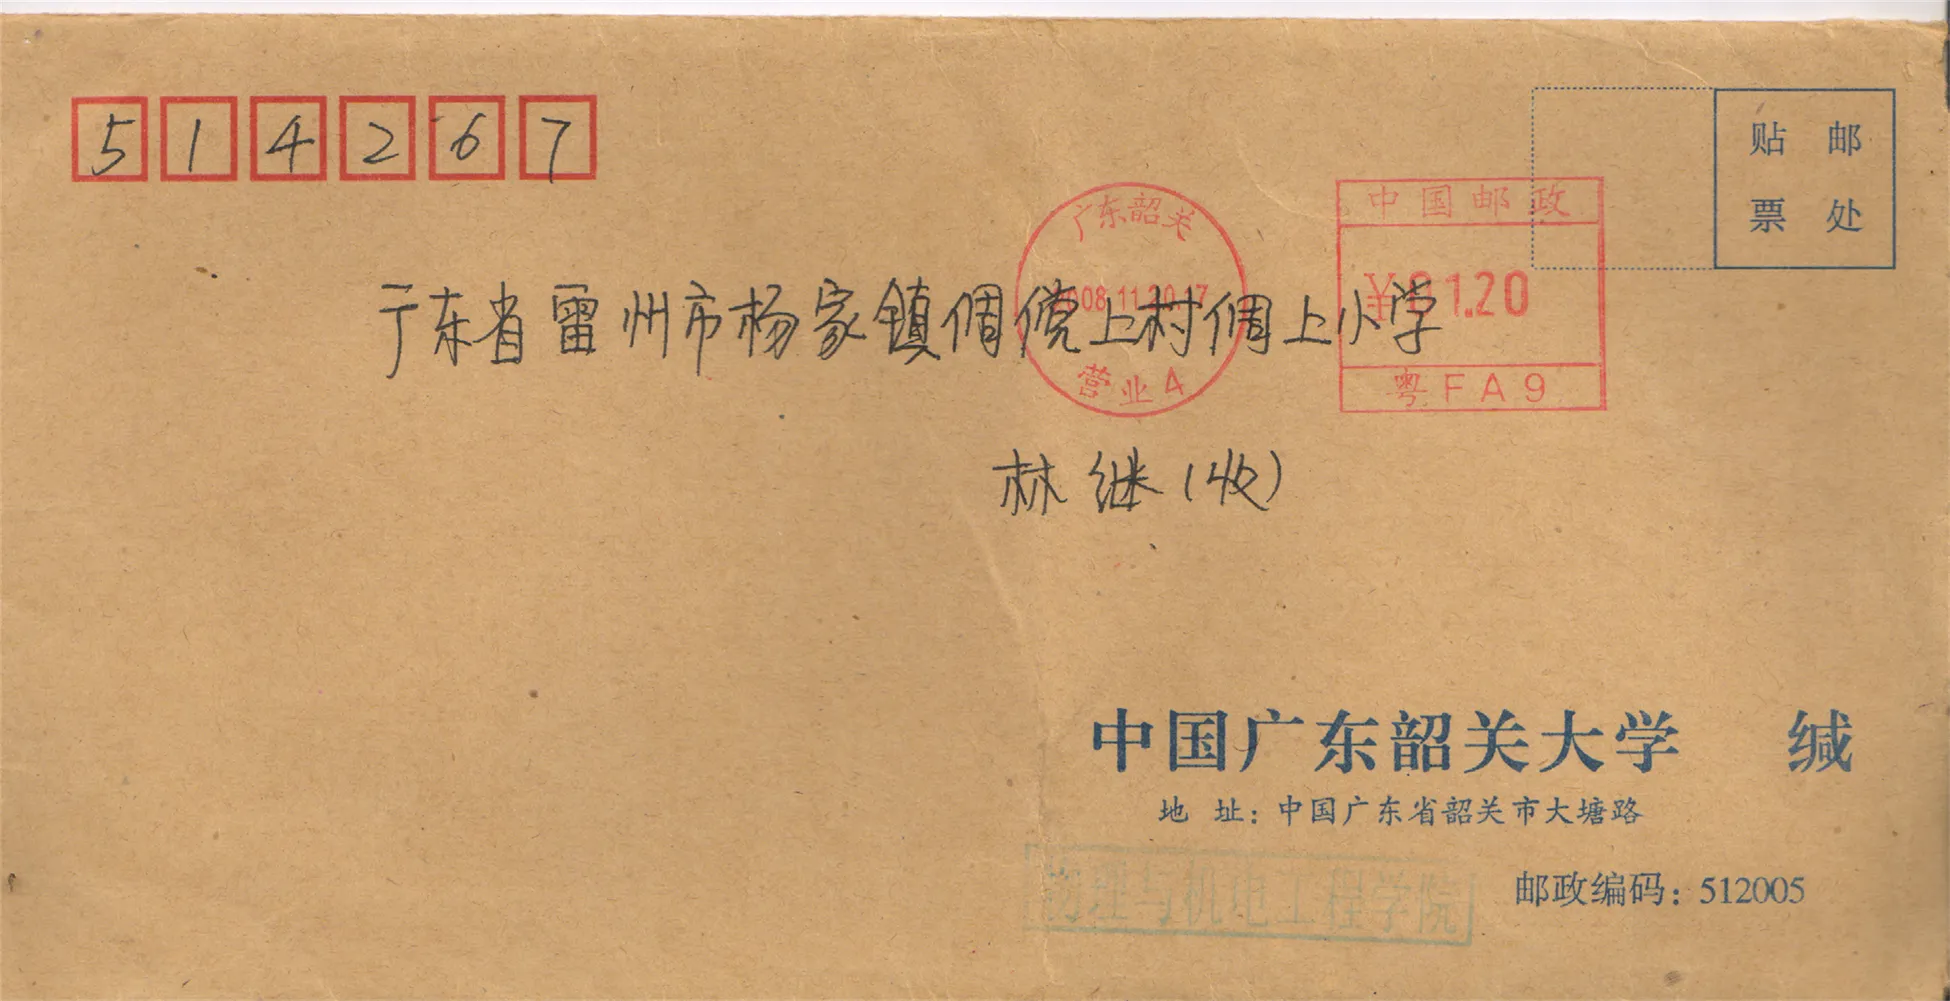 514267
贴 邮
票 处
广东韶关
2008.11.20.17
营业4
中国邮政
¥01.20
粤FA9
广东省雷州市杨家镇倜傥上村倜上小学
林继(收)
中国广东韶关大学 缄
地 址:中国广东省韶关市大塘路
物理与机电工程学院
邮政编码:512005